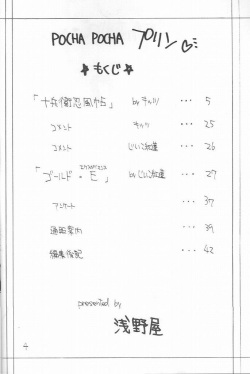 POCHA POCHA プリン
☆もくじ☆
「十兵衛忍風帖」 by チャッツ ・・・ 5
コメント チャッツ ・・・ 25
コメント ・・・ 26
「ゴールド・E」 by ・・・ 27
アンケート ・・・ 37
通販案内 ・・・ 39
編集後記 ・・・ 42
presented by
浅野屋
4